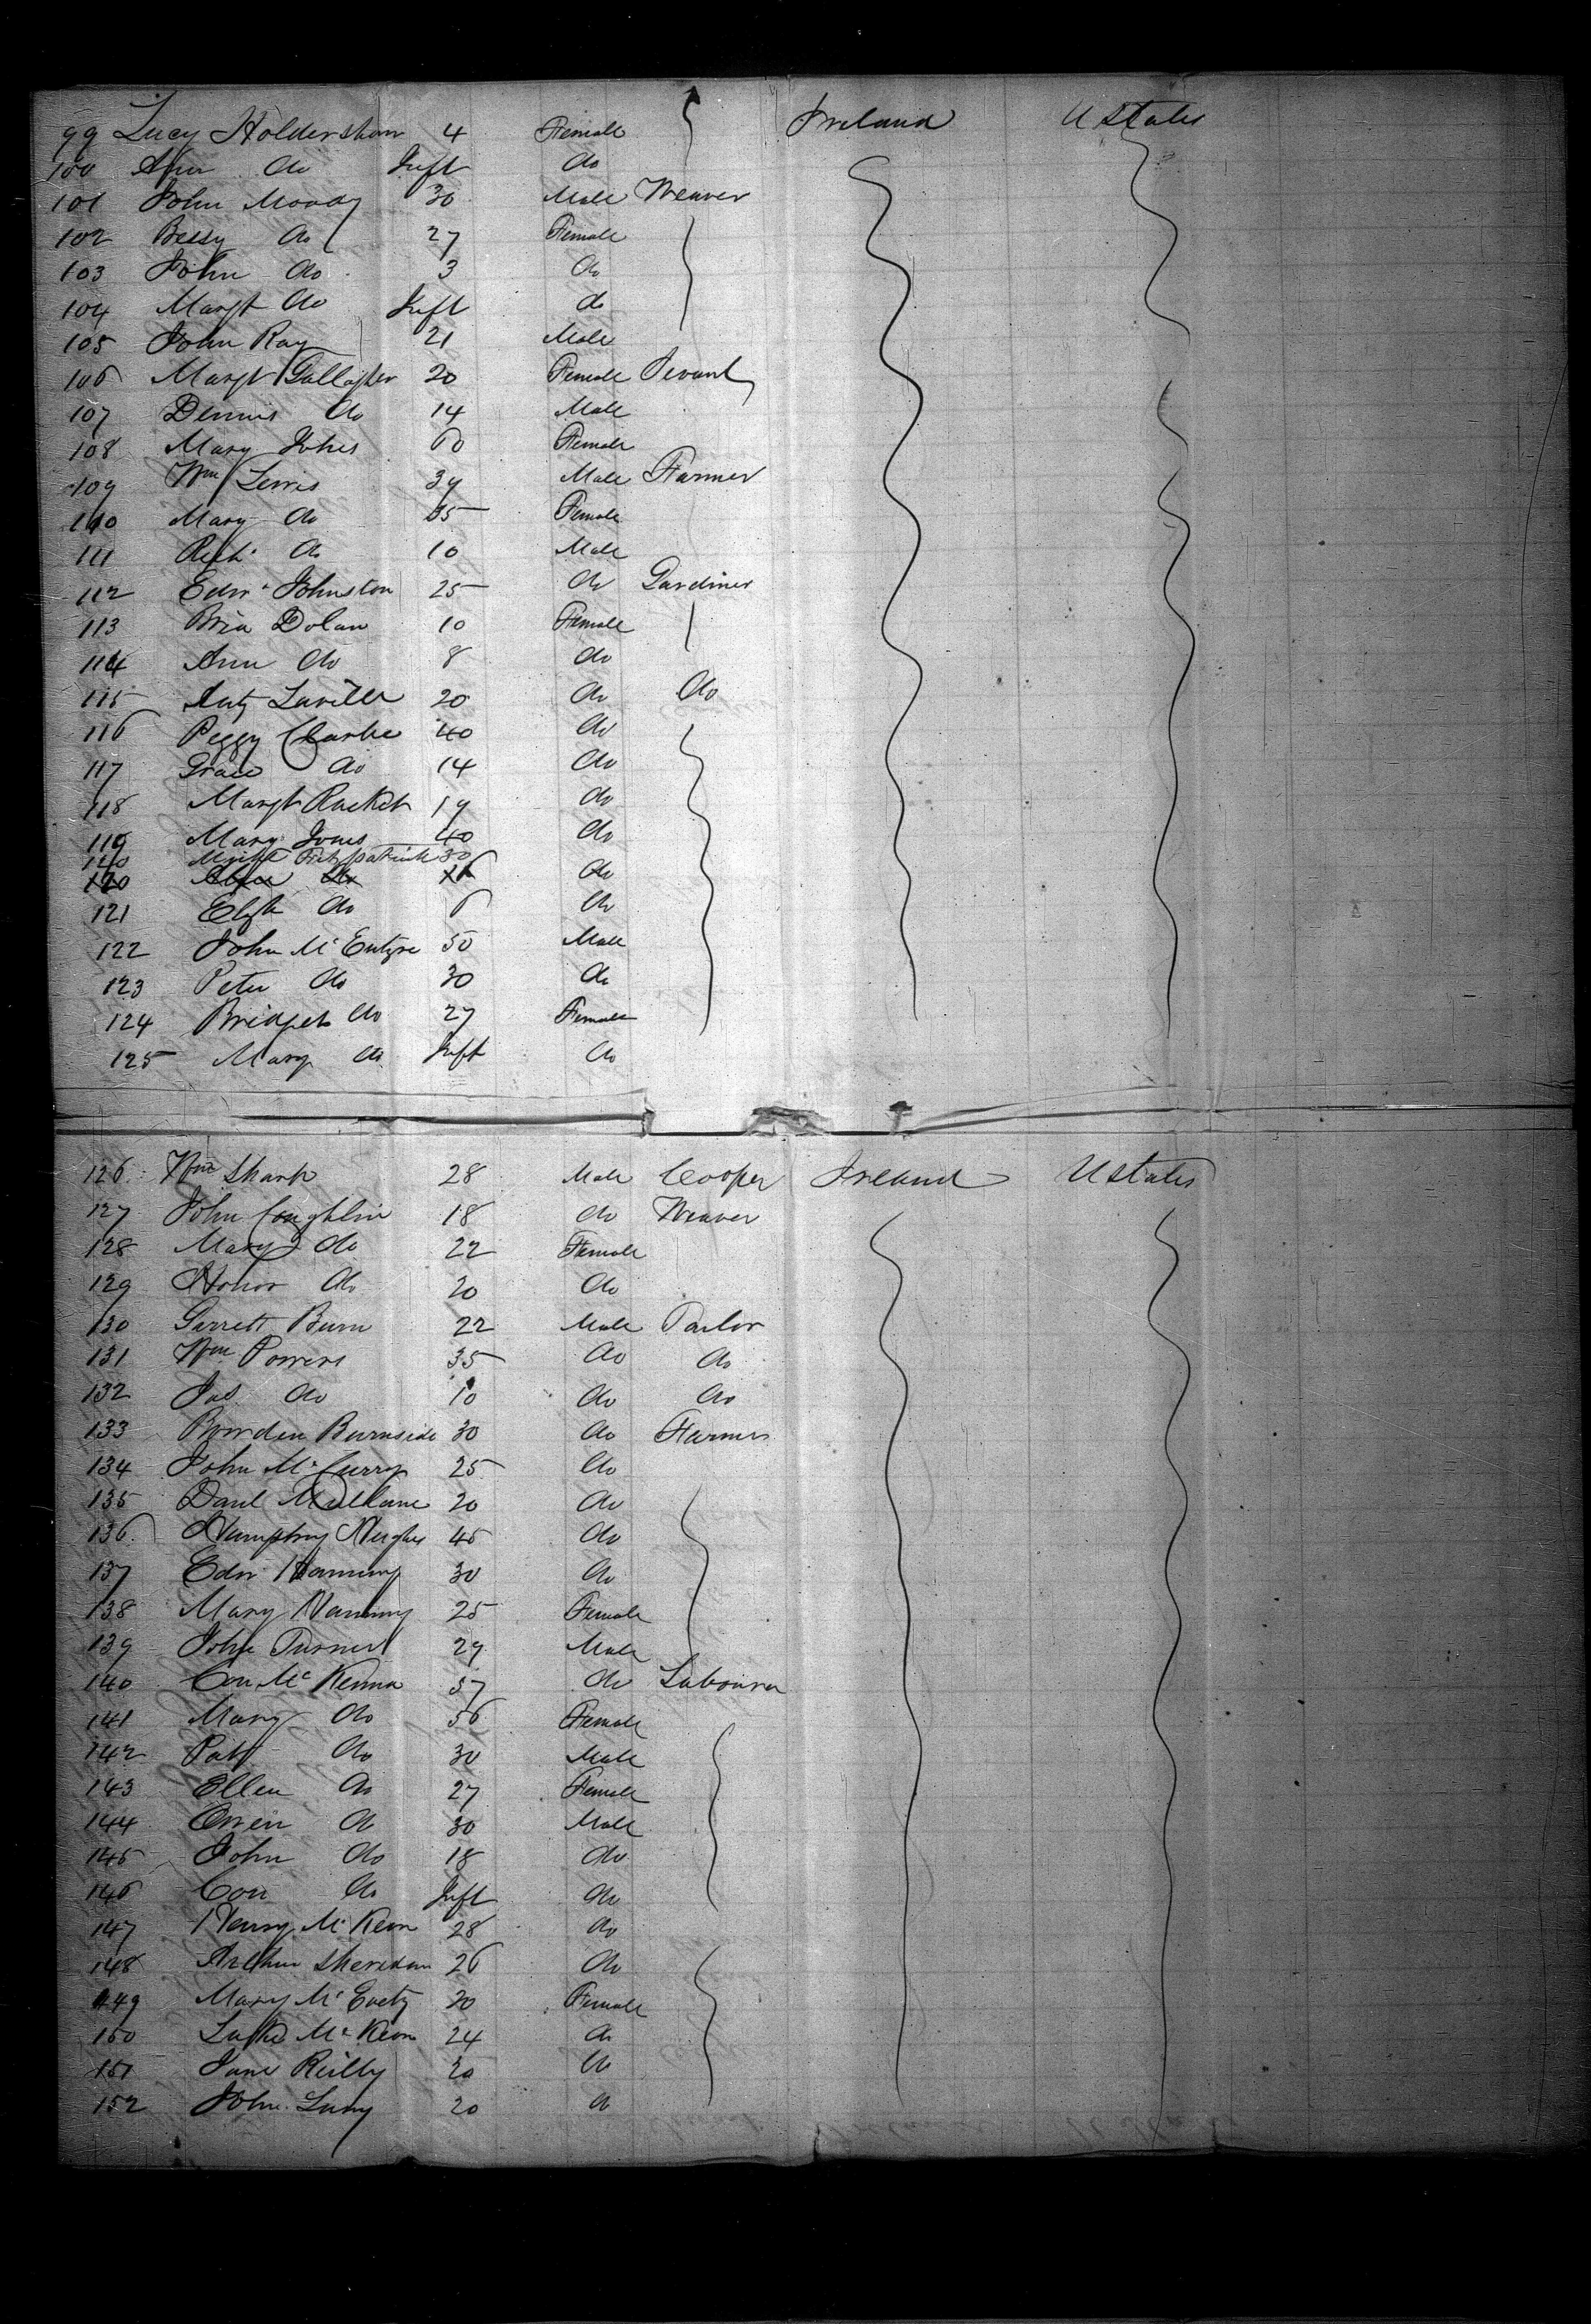 99 Lucy Holdershaw 4 Female Ireland U States
100 Ann do Inft do
101 John Moody 30 Male Weaver
102 Bessy do 27 Female
103 John do 3 do
104 Margt do Inft do
105 John Ray 21 Male
106 Margt Gallagher 20 Female Servant
107 Dennis do 14 Male
108 Mary Johes 60 Female
109 Wm Lewis 39 Male Farmer
110 Mary do 35 Female
111 Rich. do 10 Male
112 Edwd Johnston 25 do Gardiner
113 Bria Dolan 10 Female
114 Ann do 8 do
115 20 do do
116 Peggy Clarke 40 do
117 Grace do 14 do
118 Margt Racket 19 do
119 Mary Jones 40 do
120 Fitzpatrick 30
120 do do
121 Elizth do 6 do
122 John McEntyre 50 Male
123 Peter do 30 do
124 Bridget do 27 Female
125 Mary do Inft do
126 Wm Sharp 28 Male Cooper Ireland U States
127 John Coughlin 18 do Weaver
128 Mary do 22 Female
129 Honor do 20 do
130 Garrett Burn 22 Male Tailor
131 Wm Powers 35 do do
132 Jas. do 10 do do
133 Bowden Burnside 30 do Farmer
134 John McCurry 25 do
135 Danl Mulhane 20 do
136 Humphry Hughes 45 do
137 Edw Hanning 30 do
138 Mary Hanning 25 Female
139 John Turner 29 Male
140 Con McKenna 57 do Labourer
141 Mary do 56 Female
142 Patt do 30 Male
143 Ellen do 27 Female
144 Owen do 30 Male
145 John do 18 do
146 Con do Inft do
147 Henry McKeon 28 do
148 Arthur Sheridan 26 do
149 Mary 20 Female
150 Luke McKeon 24 do
151 Jane Reilly 20 do
152 John Luny 20 do